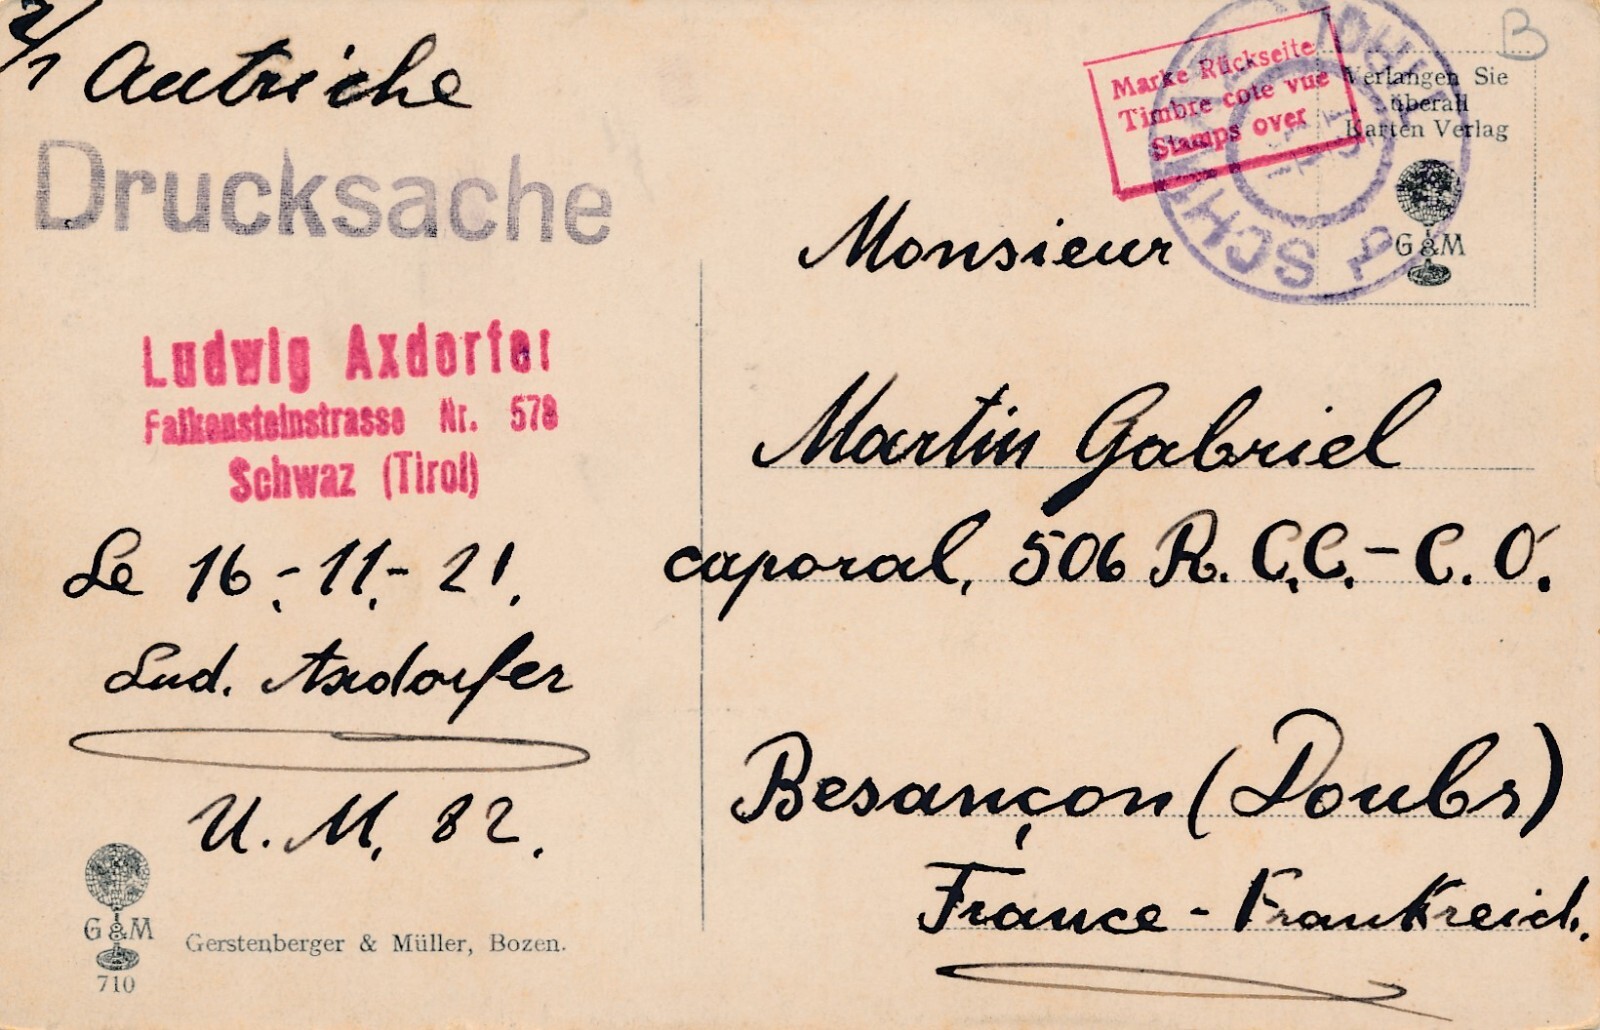 2/1 Autriche
Drucksache
Ludwig Axdorfer
Falkensteinstrasse Nr. 578
Schwaz (Tirol)
Le 16.-11.-21.
Lud. Axdorfer
U. M. 82.
G&M
710
Gerstenberger & Müller, Bozen.
B
Marke Rückseite
Timbre cote vue
Stamps over
Verlangen Sie
überall
Karten Verlag
G&M
Monsieur
Martin Gabriel
caporal, 506 R. C.C.-C.O.
Besançon (Doubs)
France - Frankreich.